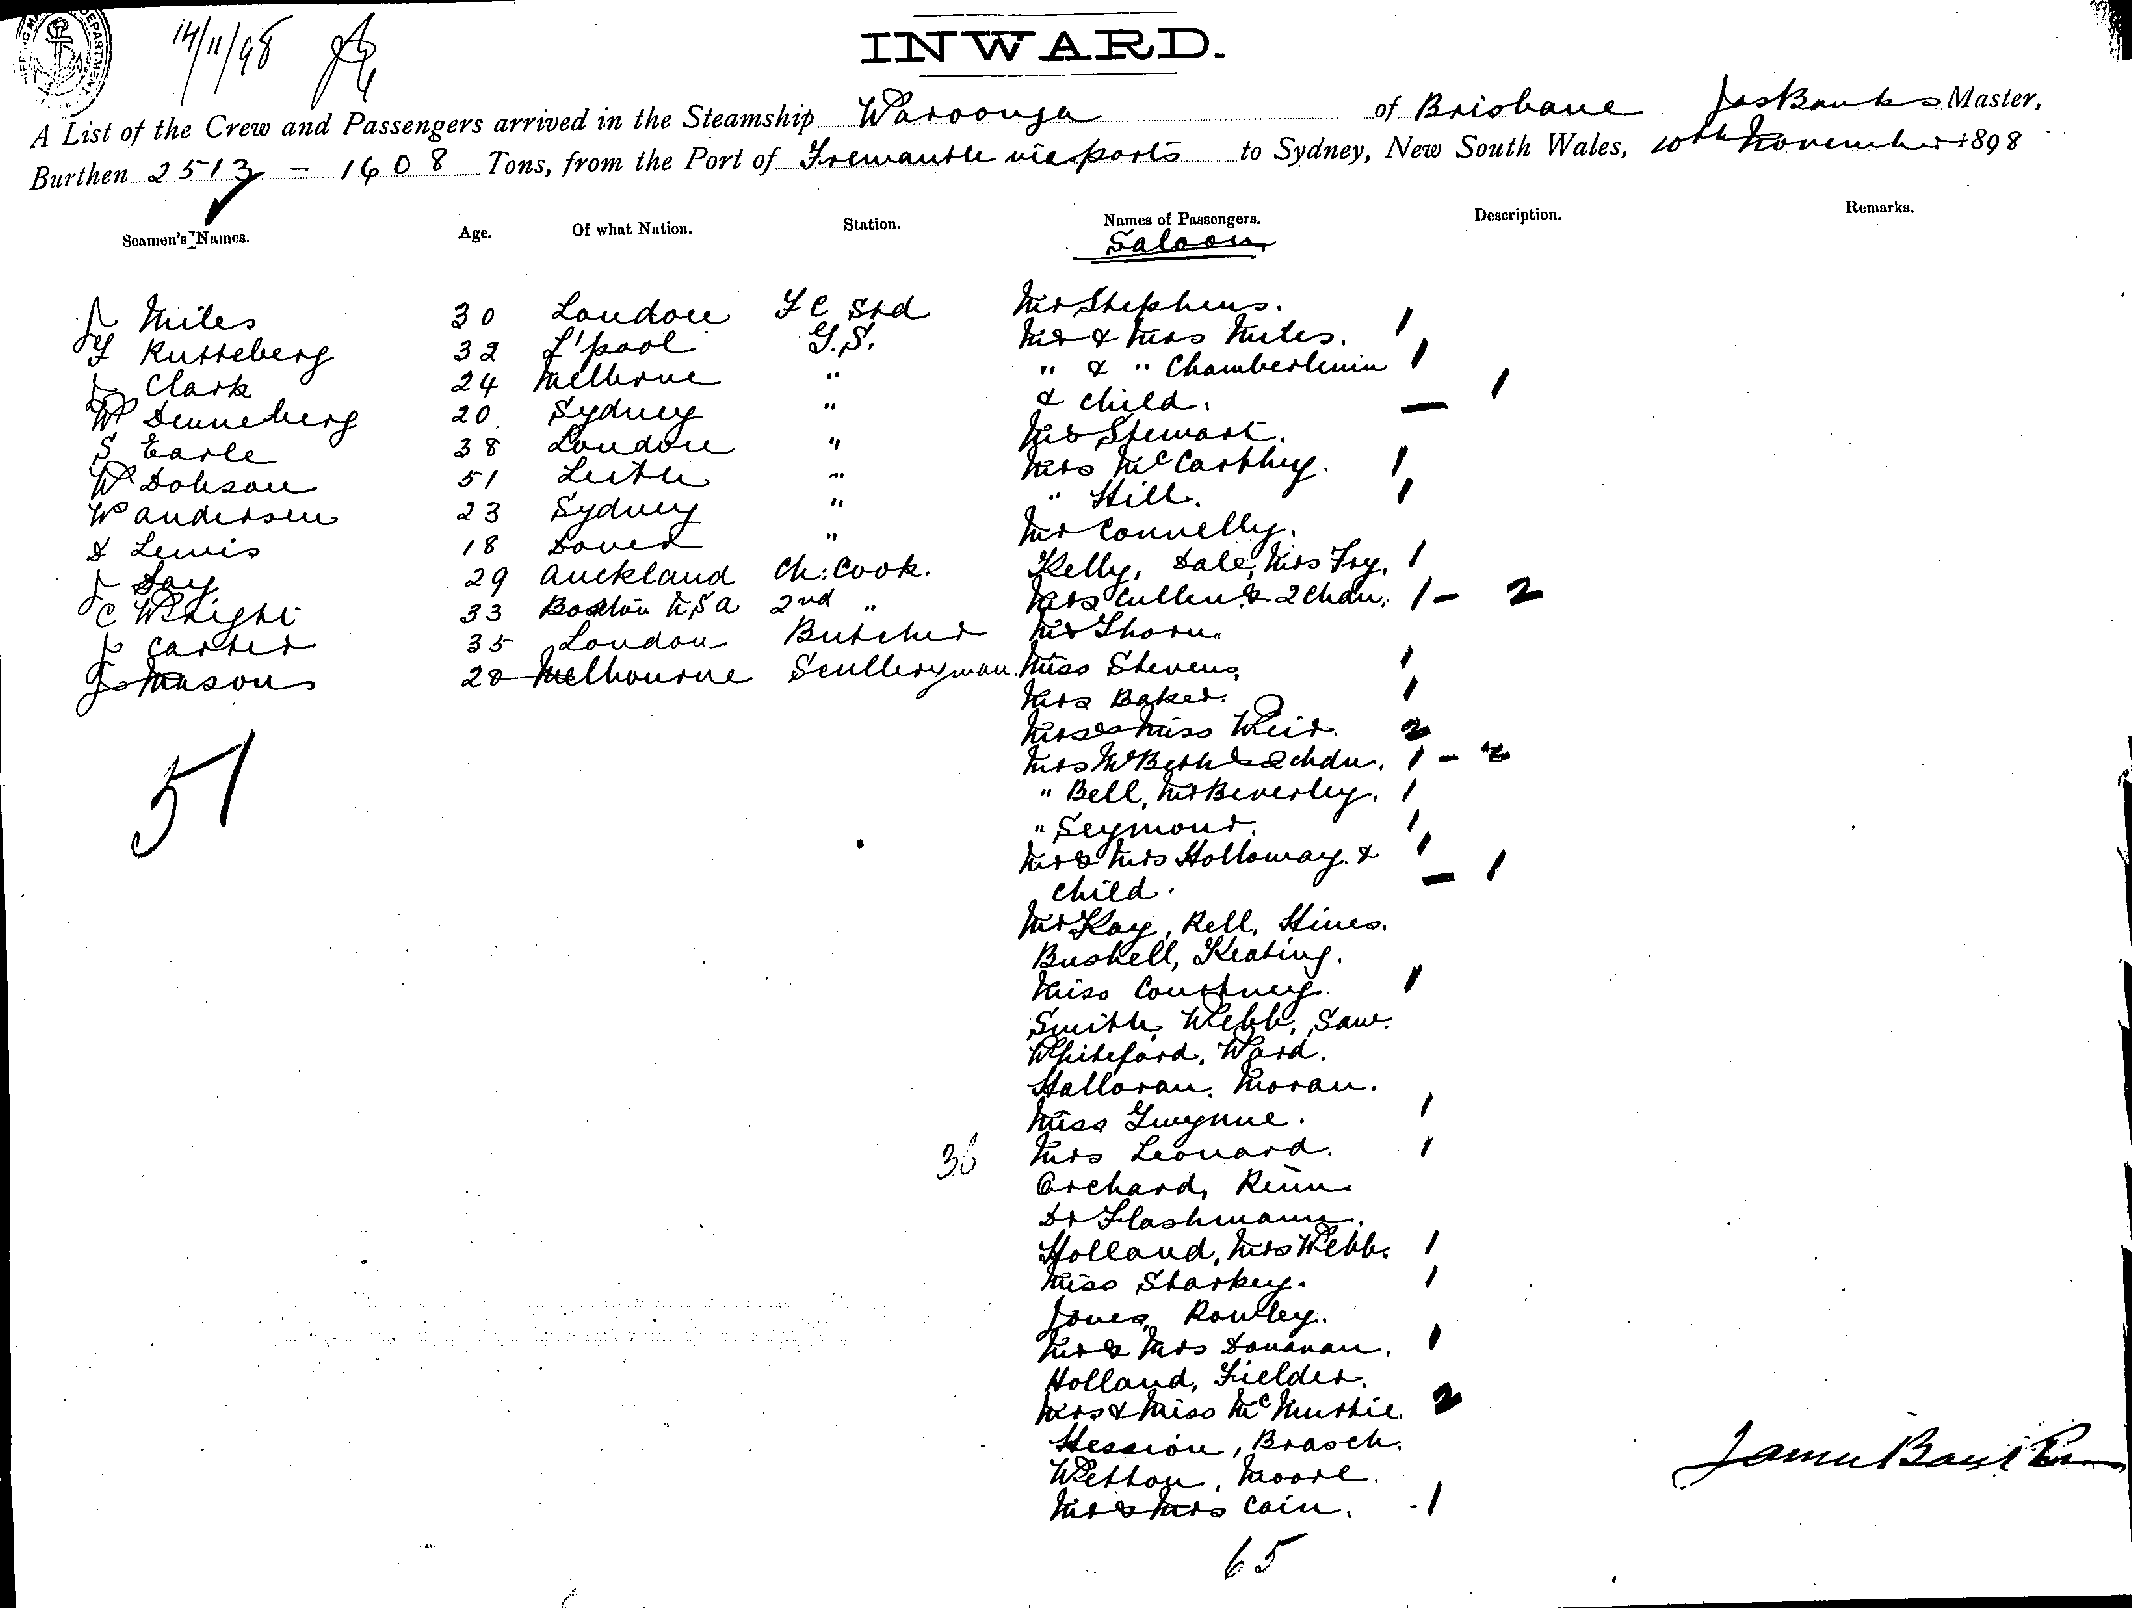 DEPARTMENT
14/11/98
INWARD.
A List of the Crew and Passengers arrived in the Steamship Waroonga of Brisbane Jas Banks Master,
Burthen 2513 - 1608 Tons, from the Port of Fremantle via ports to Sydney, New South Wales, 10th November 1898
Seamen's Names. Age. Of what Nation. Station. Names of Passengers. Description. Remarks.
Saloon
J Miles 30 London F C Std Mr Stephens.
F Rutteberg 32 L'pool G.S. Mr & Mrs Miles. 1
J Clark 24 Melbrne " " & " Chamberlain 1
W Denneberg 20 Sydney " & child. — 1
S Earle 38 London " Mr Stewart.
W Dobson 51 Leith " Mrs McCarthy. 1
W Andersen 23 Sydney " " Hill. 1
D Lewis 18 Dover " Mr Connelly.
J Day 29 Auckland Ch: Cook. Kelly, Dale, Mrs Fry. 1
C Wright 33 Boston U.S.A 2nd " Mrs Cullen & 2 Chdn. 1 - 2
J Carter 35 London Butcher Mr Thorn.
Js Mason 28 Melbourne Sculleryman Miss Stevens, 1
Mrs Baker. 1
Mrs & Miss Weir. 2
Mrs McBeth & 2 chdn. 1 - 2
" Bell, Mr Beverley. 1
" Seymour. 1
Mr & Mrs Holloway & 1
child. — 1
Mr Kay, Rell, Hines.
Bushell, Keating.
Miss Courtney. 1
Smith, Webb, Saw.
Whiteford, Ward.
Halloran, Moran.
Miss Gwynne. 1
36 Mrs Leonard. 1
Orchard,
Dr Flashmann.
Holland, Mrs Webb. 1
Miss Sharkey. 1
Jones, Rowley.
Mr & Mrs Donavan. 1
Holland, Fielder.
Mrs & Miss McMurtrie. 2
Hession, Brasch.
Wetton, Moore.
Mr & Mrs Cain. - 1
51
65
James Banks